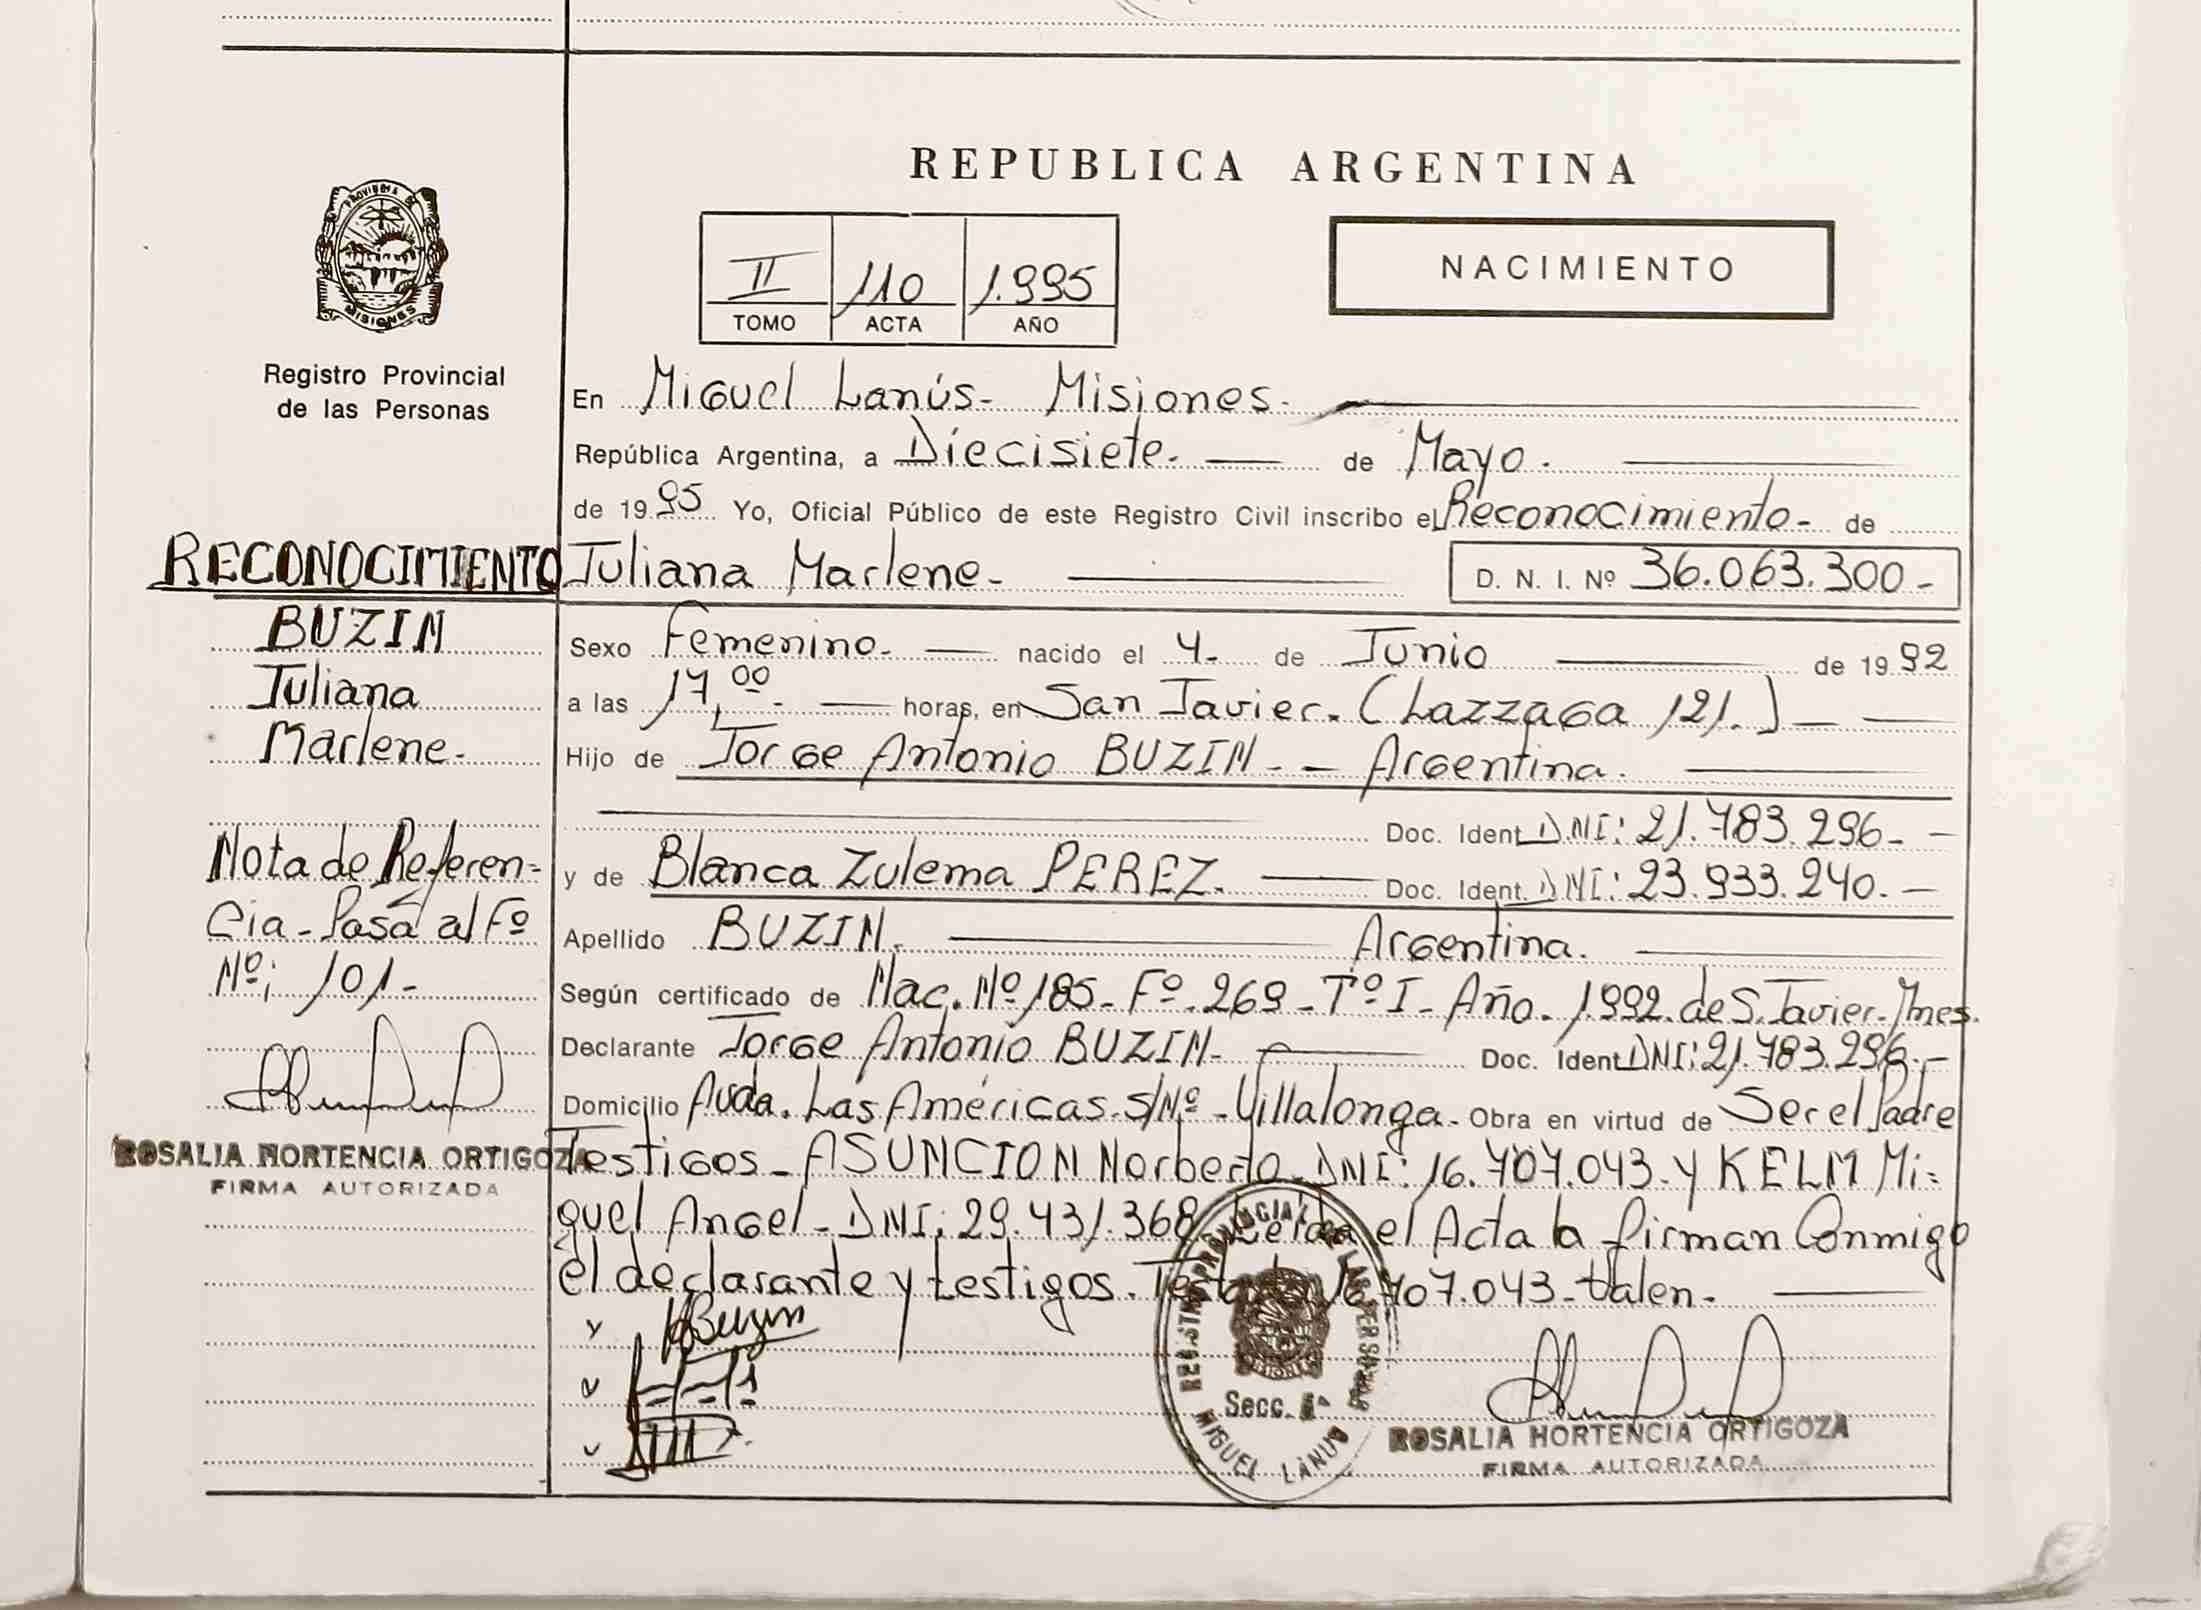 REPUBLICA ARGENTINA
PROVINCIA DE MISIONES
Registro Provincial
de las Personas
II 110 1.995
TOMO ACTA AÑO
NACIMIENTO
En Miguel Lanús- Misiones-
República Argentina, a Diecisiete. de Mayo.
de 1995 Yo, Oficial Público de este Registro Civil inscribo el Reconocimiento- de
RECONOCIMIENTO
Juliana Marlene- D. N. I. Nº 36.063.300-
BUZIN
Juliana
Marlene-
Sexo Femenino- nacido el 4- de Junio de 1992
a las 17,00- horas, en San Javier. (Lazzaga 121.)
Hijo de Jorge Antonio BUZIN- Argentina.
Doc. Ident. DNI: 21.783.296-
y de Blanca Zulema PEREZ. Doc. Ident. DNI: 23.933.240.-
Apellido BUZIN. Argentina.
Nota de Referen=
cia- Pasa al Fº
Nº: 101-
Según certificado de Nac. Nº 185- Fº 269- Tº I- Año- 1992. de S. Javier- Mnes.
Declarante Jorge Antonio BUZIN- Doc. Ident DNI: 21.783.296.-
Domicilio Avda. Las Américas- S/Nº- Villalonga- Obra en virtud de Ser el Padre
Testigos- ASUNCION Norberto- DNI: 16.707.043- y KELM Mi=
guel Angel- DNI: 29.431.368 Leida el Acta la firman Conmigo
el declarante y testigos. Testado 16.707.043- Valen-
Buzin
ROSALIA HORTENCIA ORTIGOZA
FIRMA AUTORIZADA
REGISTRO PROVINCIAL DE LAS PERSONAS
Secc.
MIGUEL LANUS
ROSALIA HORTENCIA ORTIGOZA
FIRMA AUTORIZADA